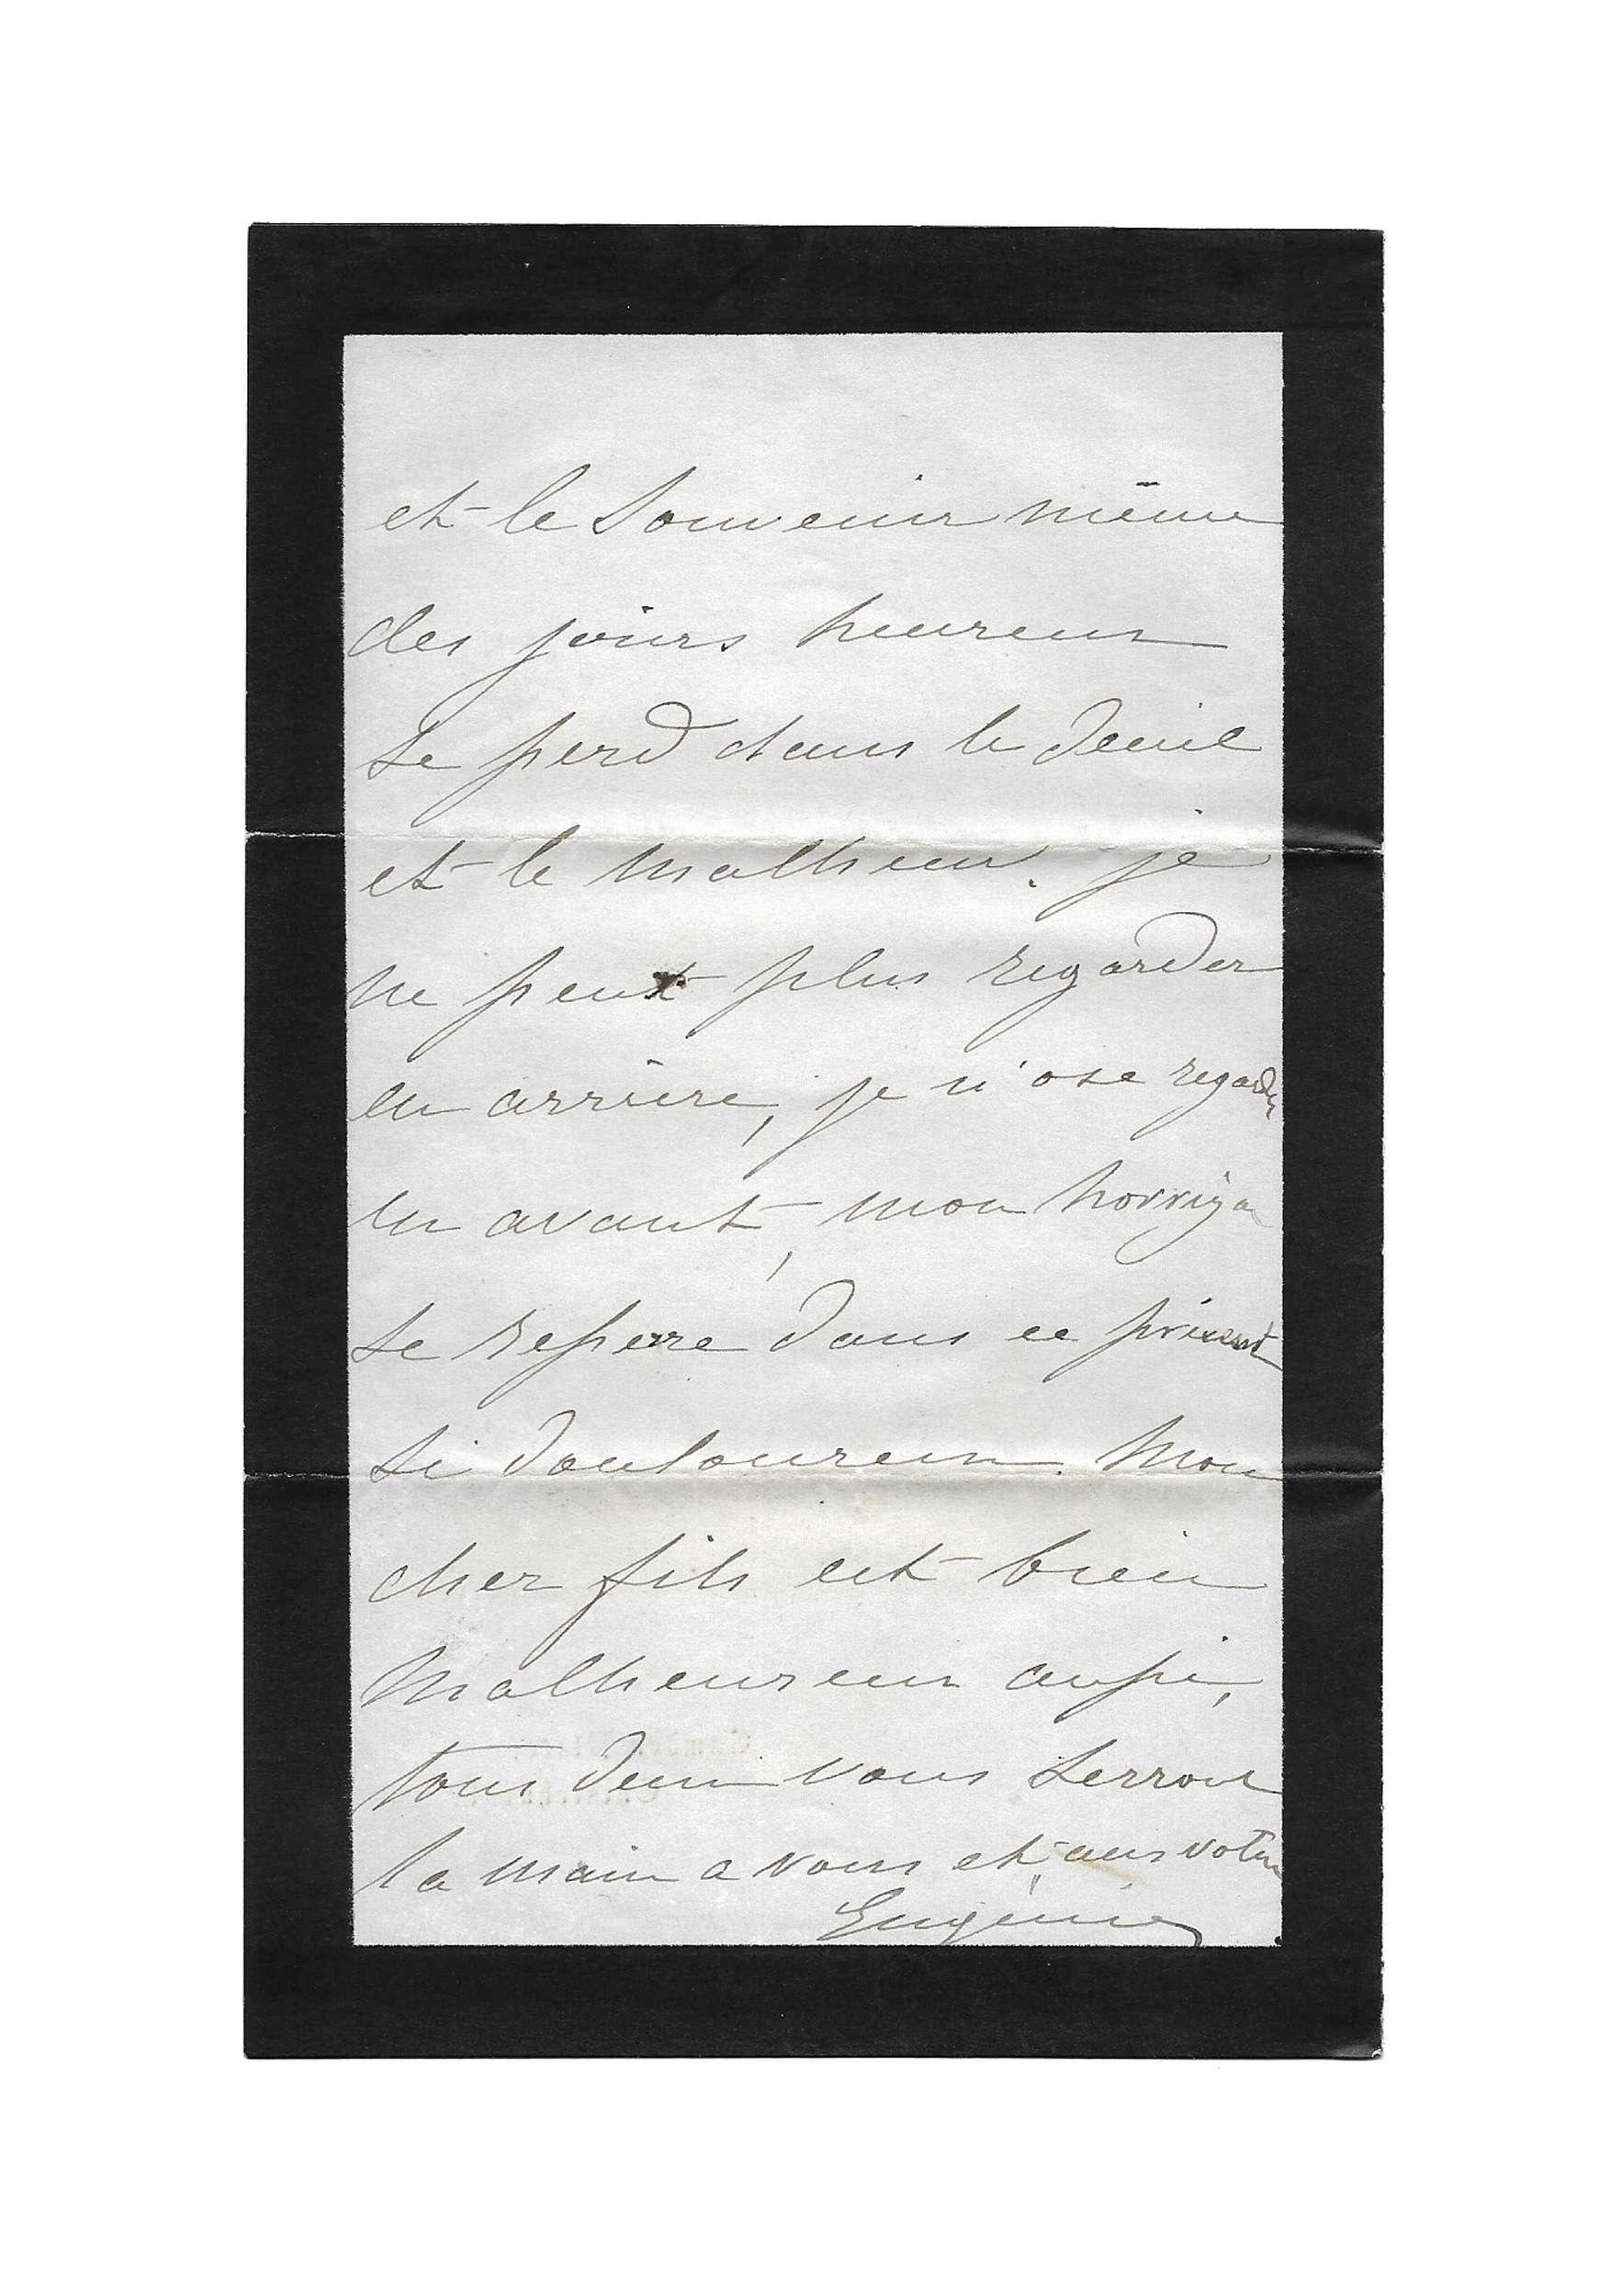 et le Souvenir même
des jours heureux
Se perd dans le deuil
et le malheur. je
ne peux plus regarder
en arrière, je n'ose regarder
en avant, mon horrizon
Se reserre dans ce présent
Si douloureux. Mon
cher fils est bien
Malheureux aussi,
tous deux nous Serrons
la main a vous et aux votres
Eugénie